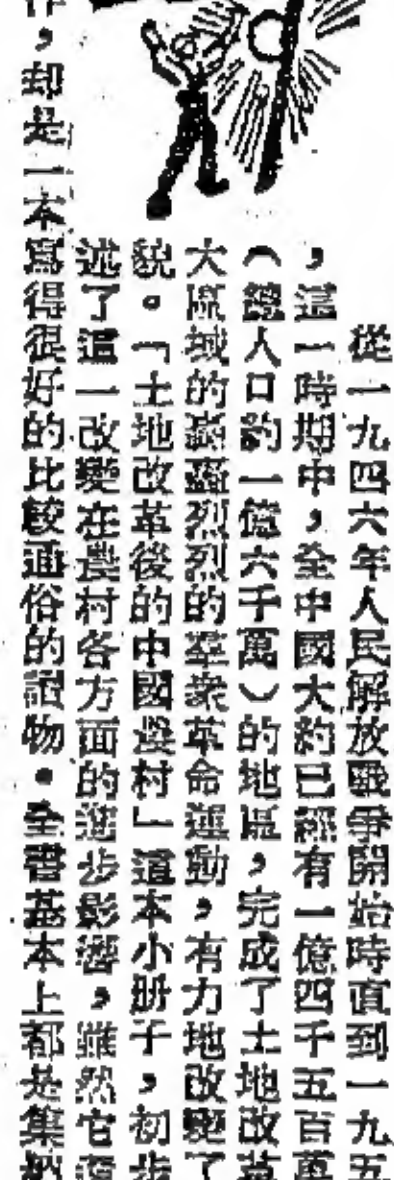 從一九四六年人民解放戰爭開始時直到一九五
，這一時期中，全中國大約已經有一億四千五百萬
（總人口約一億六千萬）的地區，完成了土地改革
大區域的轟轟烈烈的羣衆革命運動，有力地改變了
貌。「土地改革後的中國農村」這本小册子，初步
述了這一改變在農村各方面的進步影響，雖然它
作，却是一本寫得很好的比較通俗的讀物。全書基本上都是集